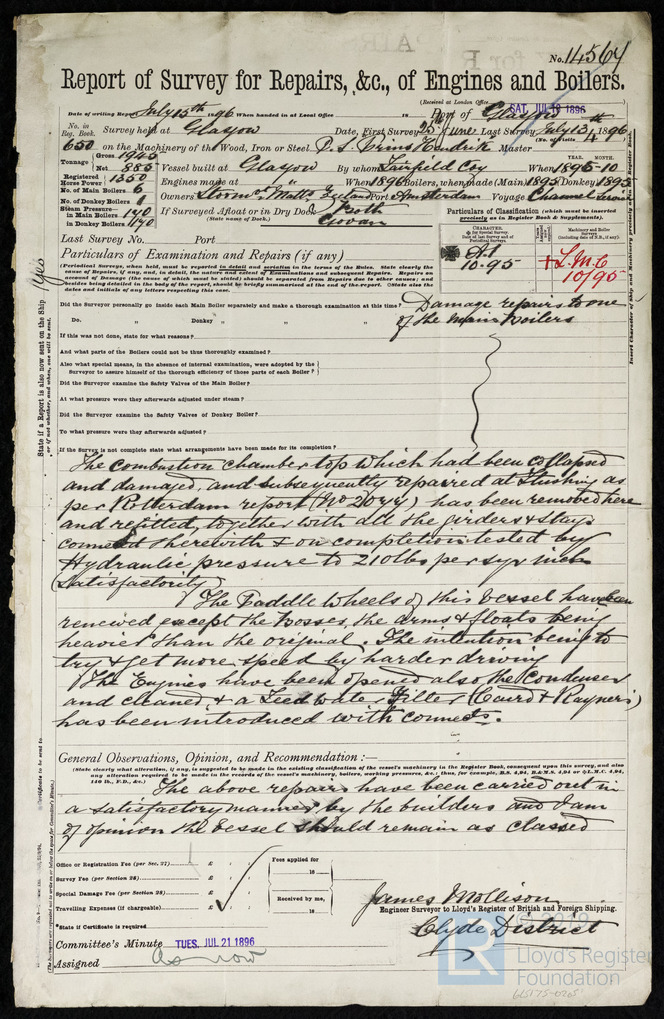 No. 14564
Report of Survey for Repairs, &c., of Engines and Boilers.
(Received at London Office SAT. JUL 18 1896)
Date of writing Report July 15th 1896 When handed in at Local Office 18 Port of Glasgow
No. in Reg. Book. Survey held at Glasgow Date, First Survey 25th June Last Survey July 13th 1896
(No. of Visits 4)
650 on the Machinery of the Wood, Iron or Steel P. S. Prins Hendrik Master
Tonnage Gross 1945
Net 885 Vessel built at Glasgow By whom Fairfield Coy When 1895-10
YEAR. MONTH.
Registered Horse Power 1350 Engines made at " When 1895 Boilers, when made (Main) 1895 (Donkey) 1895
No. of Main Boilers 6 Owners Stoomv. Matts Zeeland Port Amsterdam Voyage Channel Service
No. of Donkey Boilers 1
Steam Pressure in Main Boilers 170 If Surveyed Afloat or in Dry Dock Both
in Donkey Boilers 170 (State name of Dock.) Govan
Particulars of Classification (which must be inserted precisely as in Register Book & Supplements).
Last Survey No. Port
CHARACTER.
Machinery and Boiler Surveys
A1
10.95
+ L.M.C
10/95
Particulars of Examination and Repairs (if any)
(Periodical Surveys, when held, must be reported in detail and seriatim in the terms of the Rules. State clearly the
cause of Repairs, if any, and, in detail, the nature and extent of Examinations and subsequent Repairs. Repairs on
account of Damage (the cause of which must be stated) should be separated from Repairs due to other causes; and
besides being detailed in the body of the report, should be briefly summarised at the end of the report. State also the
dates and initials of any letters respecting this case.
Did the Surveyor personally go inside each Main Boiler separately and make a thorough examination at this time? Damage repairs to one
Do. " Donkey " " " of the Main Boilers
If this was not done, state for what reasons?
And what parts of the Boilers could not be thoroughly examined?
Also what special means, in the absence of internal examination, were adopted by the
Surveyor to assure himself of the thorough efficiency of those parts of each Boiler?
Did the Surveyor examine the Safety Valves of the Main Boiler?
At what pressure were they afterwards adjusted under steam?
Did the Surveyor examine the Safety Valves of Donkey Boiler?
To what pressure were they afterwards adjusted?
If the Survey is not complete state what arrangements have been made for its completion?
The combustion chamber top which had been collapsed
and damaged, and subsequently repaired at Flushing as
per Rotterdam report (No 2044) has been removed here
and refitted, together with all the girders & stays
connected therewith & on completion tested by
Hydraulic pressure to 210 lbs per sqr inch
Satisfactorily
The Paddle Wheels of this vessel have been
renewed except the bosses, the arms & floats being
heavier than the original. The intention being to
try & get more speed by harder driving
The Engines have been opened also the Condenser
and cleaned, & a Feed water Filter (Caird & Rayner's)
has been introduced with connects.
General Observations, Opinion, and Recommendation :—
(State clearly what alteration, if any, is suggested to be made in the existing classification of the vessel's machinery in the Register Book, consequent upon this survey, and also
any alteration required to be made in the records of the vessel's machinery, boilers, working pressures, &c.: thus, for example, B.S. 4,94, B.&M.S. 4,94 or +L.M.C. 4,94,
140 lb., F.D., &c.)
The above repairs have been carried out in
a satisfactory manner by the builders and I am
of opinion the vessel should remain as classed
Office or Registration Fee (per Sec. 27) £ : :
Survey Fee (per Section 28) £ : :
Special Damage Fee (per Section 28) £ : :
Travelling Expenses (if chargeable) £ : :
Fees applied for
18
Received by me,
18
James Mollison
Engineer Surveyor to Lloyd's Register of British and Foreign Shipping.
*State if Certificate is required
Clyde District
Committee's Minute TUES. JUL 21 1896
Assigned as now
State if a Report is also now sent on the Ship Yes
or if not whether, and when, one will be sent.
Insert Character of Ship and Machinery precisely as in Register Book.
© 2019
LR Lloyd's Register
Foundation